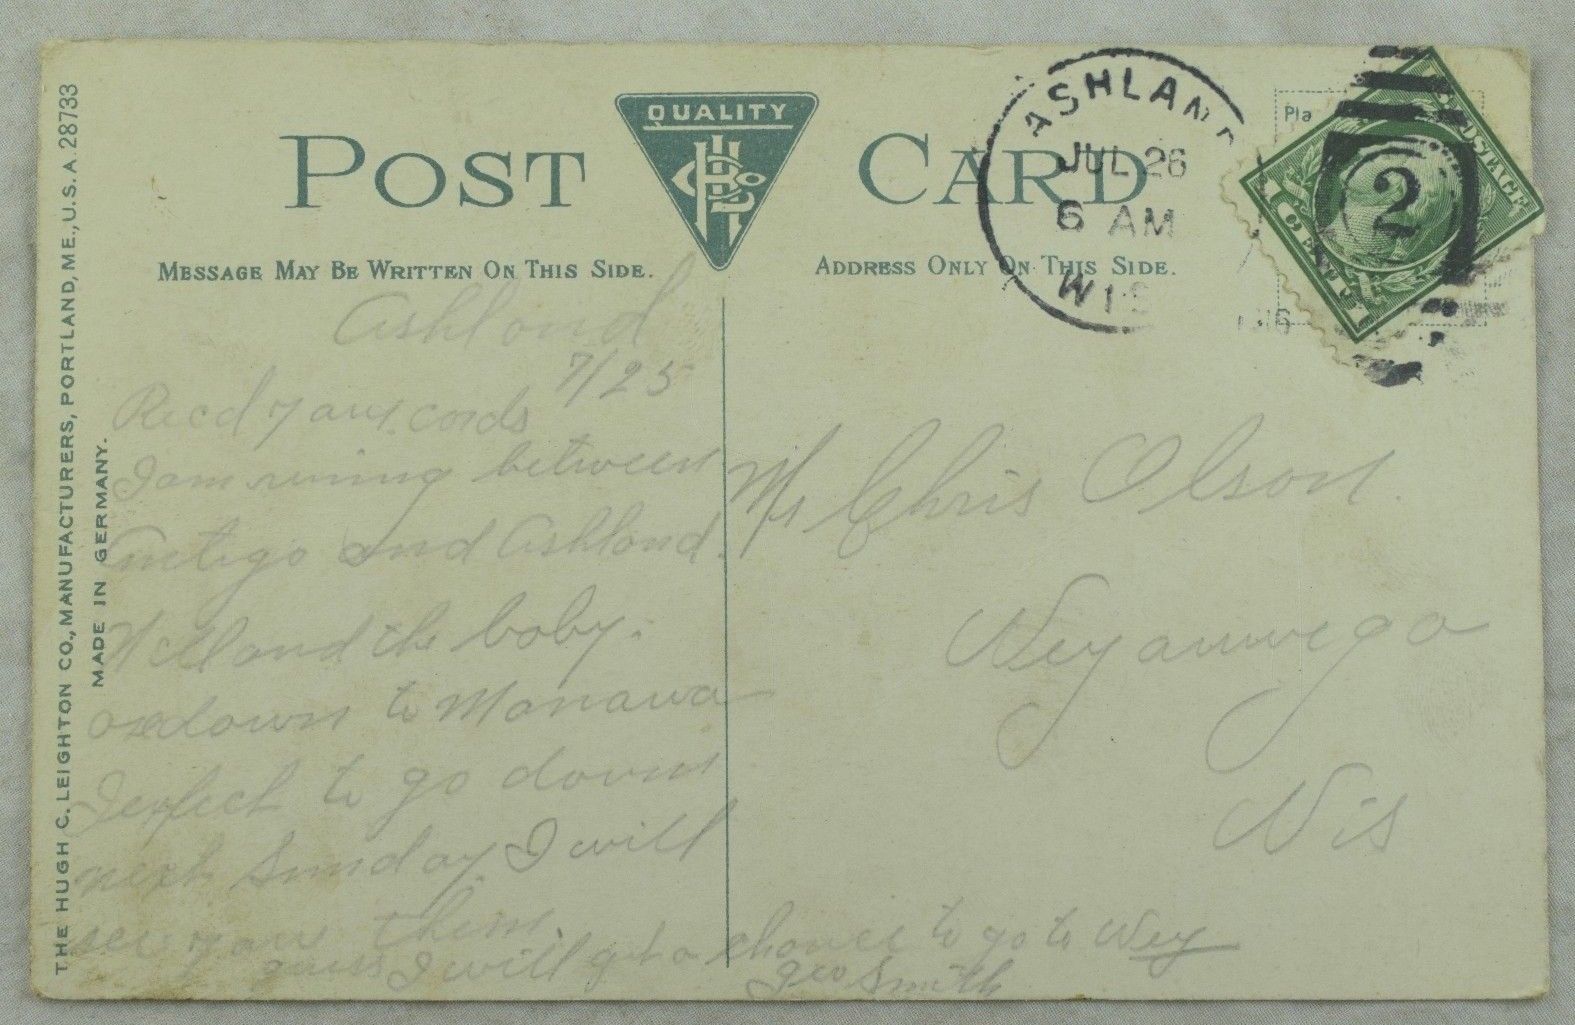 THE HUGH C. LEIGHTON CO., MANUFACTURERS, PORTLAND, ME., U.S.A. 28733
MADE IN GERMANY.
POST CARD
QUALITY
MESSAGE MAY BE WRITTEN ON THIS SIDE.
ADDRESS ONLY ON THIS SIDE.
ASHLAND
JUL 26
6 AM
WIS
Pla
POSTAGE
2
Ashland
7/25
Recd your cards
I am runing between
Antigo and Ashland.
Nell and the baby.
are down to Manawa
I expect to go down
next Sunday I will
see you then.
guess I will get a chance to go to Wey
Geo Smith
Mr Chris Olson.
Weyauwega
Wis